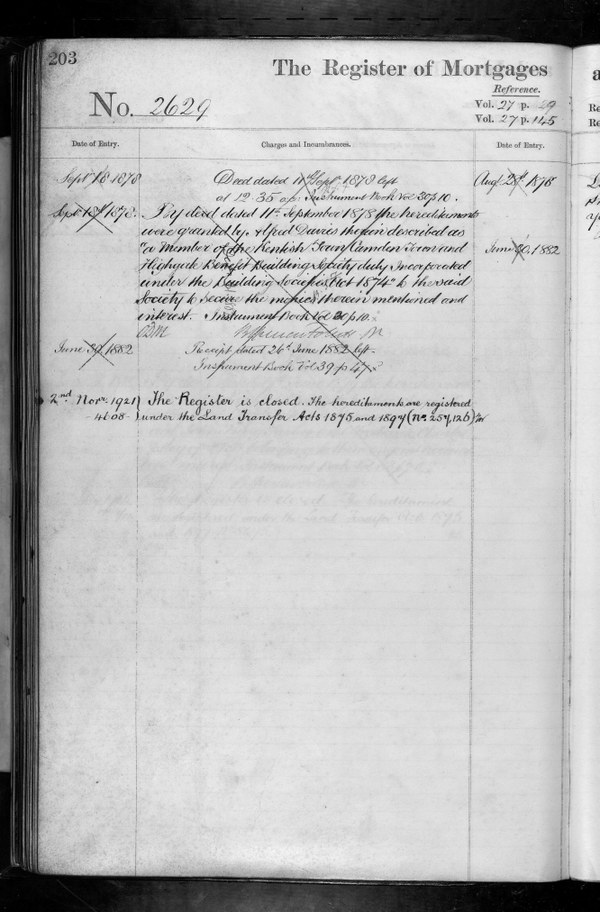 203
The Register of Mortgages
Reference.
No. 2629
Vol. 27 p. 29
Vol. 27 p. 145
Date of Entry.
Charges and Incumbrances.
Date of Entry.
Sept 18 1878
Deed dated 11th Sept 1878 left
Aug 28th 1878
at 12.35 Instrument Book Vol 30 p 10.
Sept 18th 1878.
By deed dated 11th September 1878 the hereditaments
were granted by Alfred Davis therein described as
"a Member of the Kentish Town Camden Town and
June 30, 1882
Highgate Benefit Building Society duly Incorporated
under the Building Societies Act 1874" to the said
Society to secure the monies therein mentioned and
interest. Instrument Book Vol 30 p 10.
June 30, 1882
Receipt dated 26th June 1882 left
Instrument Book Vol 39. p 47
2nd Novr. 1921
The Register is closed. The hereditaments are registered
4608
under the Land Transfer Acts 1875 and 1897 (No. 257,126)
a
Re
Re